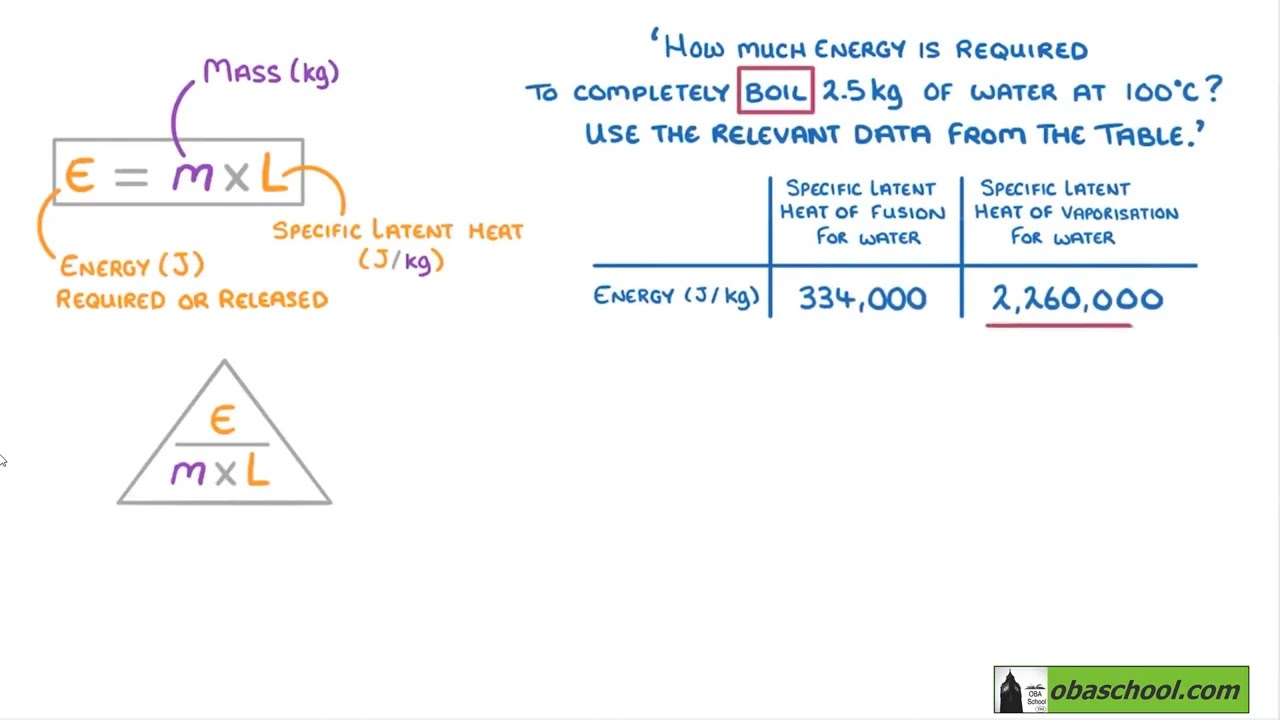 Mass (kg)
E = m x L
Specific Latent Heat
(J/kg)
Energy (J)
Required or Released
E
m x L
'How much energy is required
to completely boil 2.5kg of water at 100°C?
Use the relevant data from the table.'
Specific Latent
Heat of Fusion
for water
Specific Latent
Heat of Vaporisation
for water
Energy (J/kg)
334,000
2,260,000
OBA
School
obaschool.com